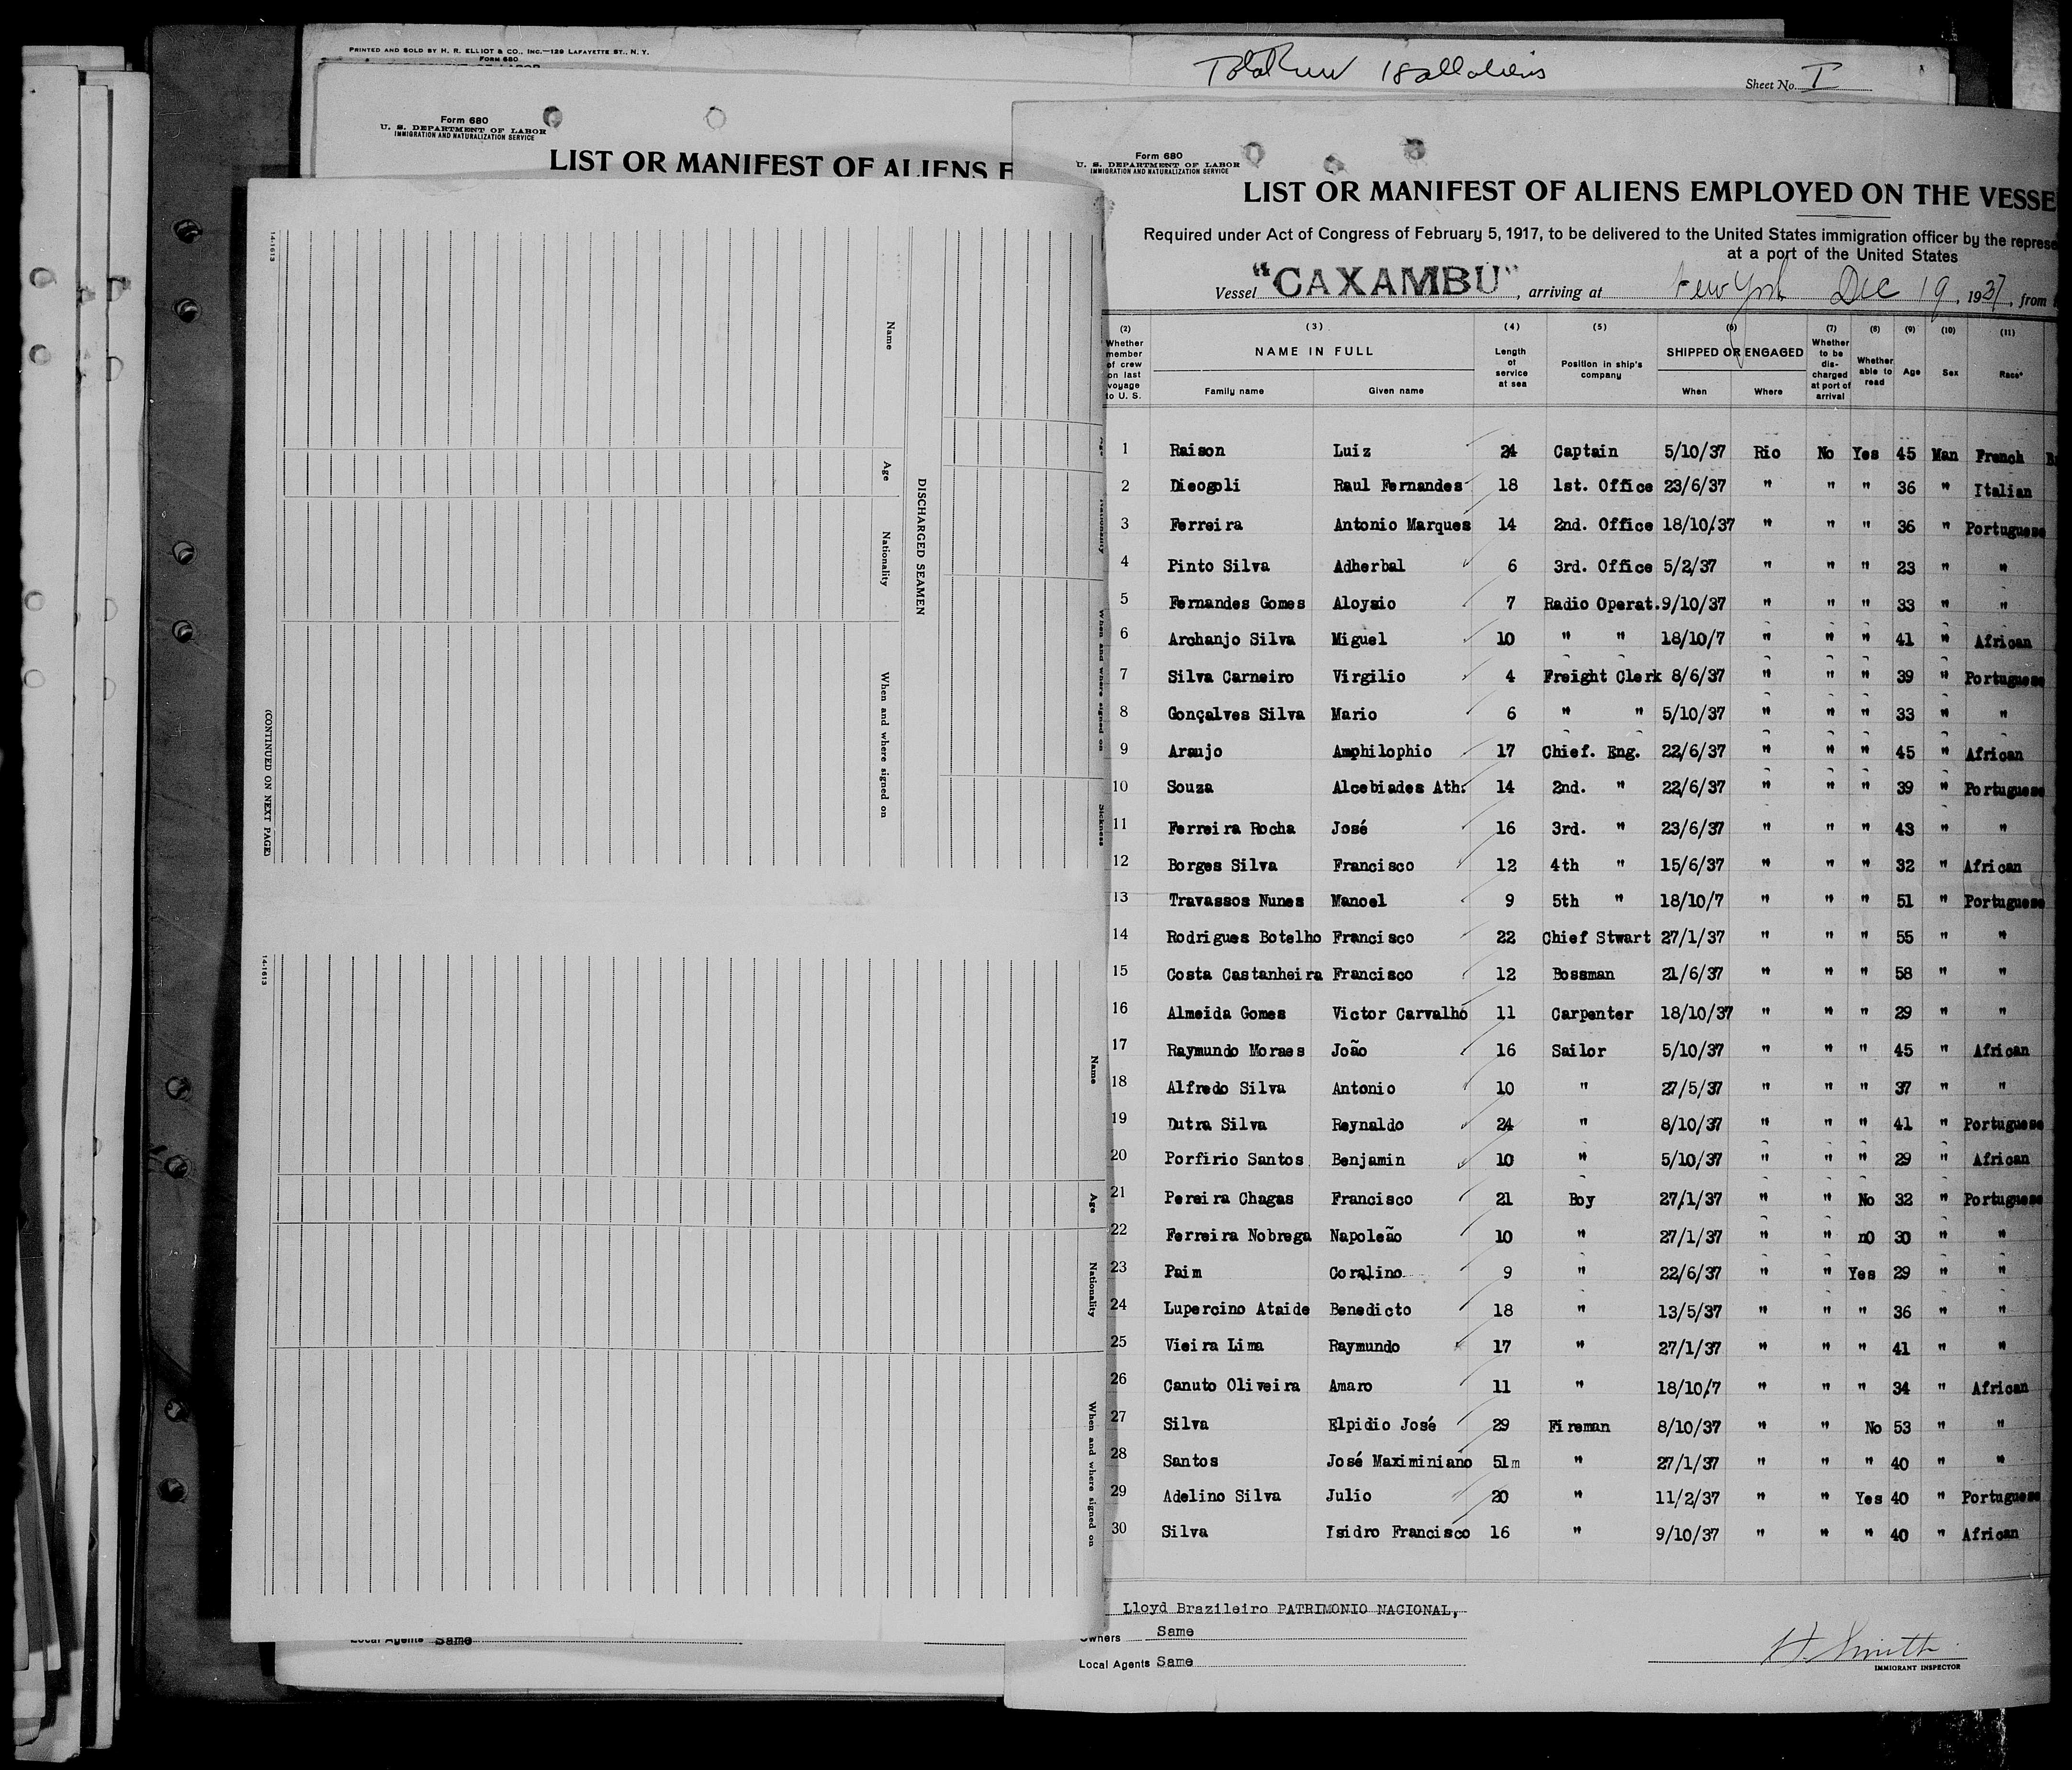 PRINTED AND SOLD BY H. R. ELLIOT & CO., INC.—129 LAFAYETTE ST., N. Y.
FORM 680
Sheet No. I
Form 680
U. S. DEPARTMENT OF LABOR
IMMIGRATION AND NATURALIZATION SERVICE
LIST OR MANIFEST OF ALIENS E
14-1613
Name
Age
Nationality
When and where signed on
DISCHARGED SEAMEN
(CONTINUED ON NEXT PAGE)
When and where signed on
Sickness
14-1613
Name
Age
Nationality
When and where signed on
Local Agents Same
Form 680
U. S. DEPARTMENT OF LABOR
IMMIGRATION AND NATURALIZATION SERVICE
LIST OR MANIFEST OF ALIENS EMPLOYED ON THE VESSE
Required under Act of Congress of February 5, 1917, to be delivered to the United States immigration officer by the represe
at a port of the United States
Vessel "CAXAMBU", arriving at New York Dec 19, 1937, from
(2) (3) (4) (5) (6) (7) (8) (9) (10) (11)
Whether member of crew on last voyage to U. S. NAME IN FULL Family name Given name Length of service at sea Position in ship's company SHIPPED OR ENGAGED When Where Whether to be discharged at port of arrival Whether able to read Age Sex Race*
1 Raison Luiz 24 Captain 5/10/37 Rio No Yes 45 Man French
2 Dieogoli Raul Fernandes 18 1st. Office 23/6/37 " " " 36 " Italian
3 Ferreira Antonio Marques 14 2nd. Office 18/10/37 " " " 36 " Portuguese
4 Pinto Silva Adherbal 6 3rd. Office 5/2/37 " " " 23 " "
5 Fernandes Gomes Aloysio 7 Radio Operat. 9/10/37 " " " 33 " "
6 Archanjo Silva Miguel 10 " " 18/10/7 " " " 41 " African
7 Silva Carneiro Virgilio 4 Freight Clerk 8/6/37 " " " 39 " Portuguese
8 Gonçalves Silva Mario 6 " " 5/10/37 " " " 33 " "
9 Araujo Amphilophio 17 Chief. Eng. 22/6/37 " " " 45 " African
10 Souza Alcebiades Ath. 14 2nd. " 22/6/37 " " " 39 " Portuguese
11 Ferreira Rocha José 16 3rd. " 23/6/37 " " " 43 " "
12 Borges Silva Francisco 12 4th " 15/6/37 " " " 32 " African
13 Travassos Nunes Manoel 9 5th " 18/10/7 " " " 51 " Portuguese
14 Rodrigues Botelho Francisco 22 Chief Stwart 27/1/37 " " " 55 " "
15 Costa Castanheira Francisco 12 Bossman 21/6/37 " " " 58 " "
16 Almeida Gomes Victor Carvalho 11 Carpenter 18/10/37 " " " 29 " "
17 Raymundo Moraes João 16 Sailor 5/10/37 " " " 45 " African
18 Alfredo Silva Antonio 10 " 27/5/37 " " " 37 " "
19 Dutra Silva Reynaldo 24 " 8/10/37 " " " 41 " Portuguese
20 Porfirio Santos Benjamin 10 " 5/10/37 " " " 29 " African
21 Pereira Chagas Francisco 21 Boy 27/1/37 " " No 32 " Portuguese
22 Ferreira Nobrega Napoleão 10 " 27/1/37 " " nO 30 " "
23 Paim Coralino 9 " 22/6/37 " " Yes 29 " "
24 Lupercino Ataide Benedicto 18 " 13/5/37 " " " 36 " "
25 Vieira Lima Raymundo 17 " 27/1/37 " " " 41 " "
26 Canuto Oliveira Amaro 11 " 18/10/7 " " " 34 " African
27 Silva Elpidio José 29 Fireman 8/10/37 " " No 53 " "
28 Santos José Maximiniano 51m " 27/1/37 " " " 40 " "
29 Adelino Silva Julio 20 " 11/2/37 " " Yes 40 " Portuguese
30 Silva Isidro Francisco 16 " 9/10/37 " " " 40 " African
Lloyd Brazileiro PATRIMONIO NACIONAL,
Owners Same
Local Agents Same
H. Smith
IMMIGRANT INSPECTOR